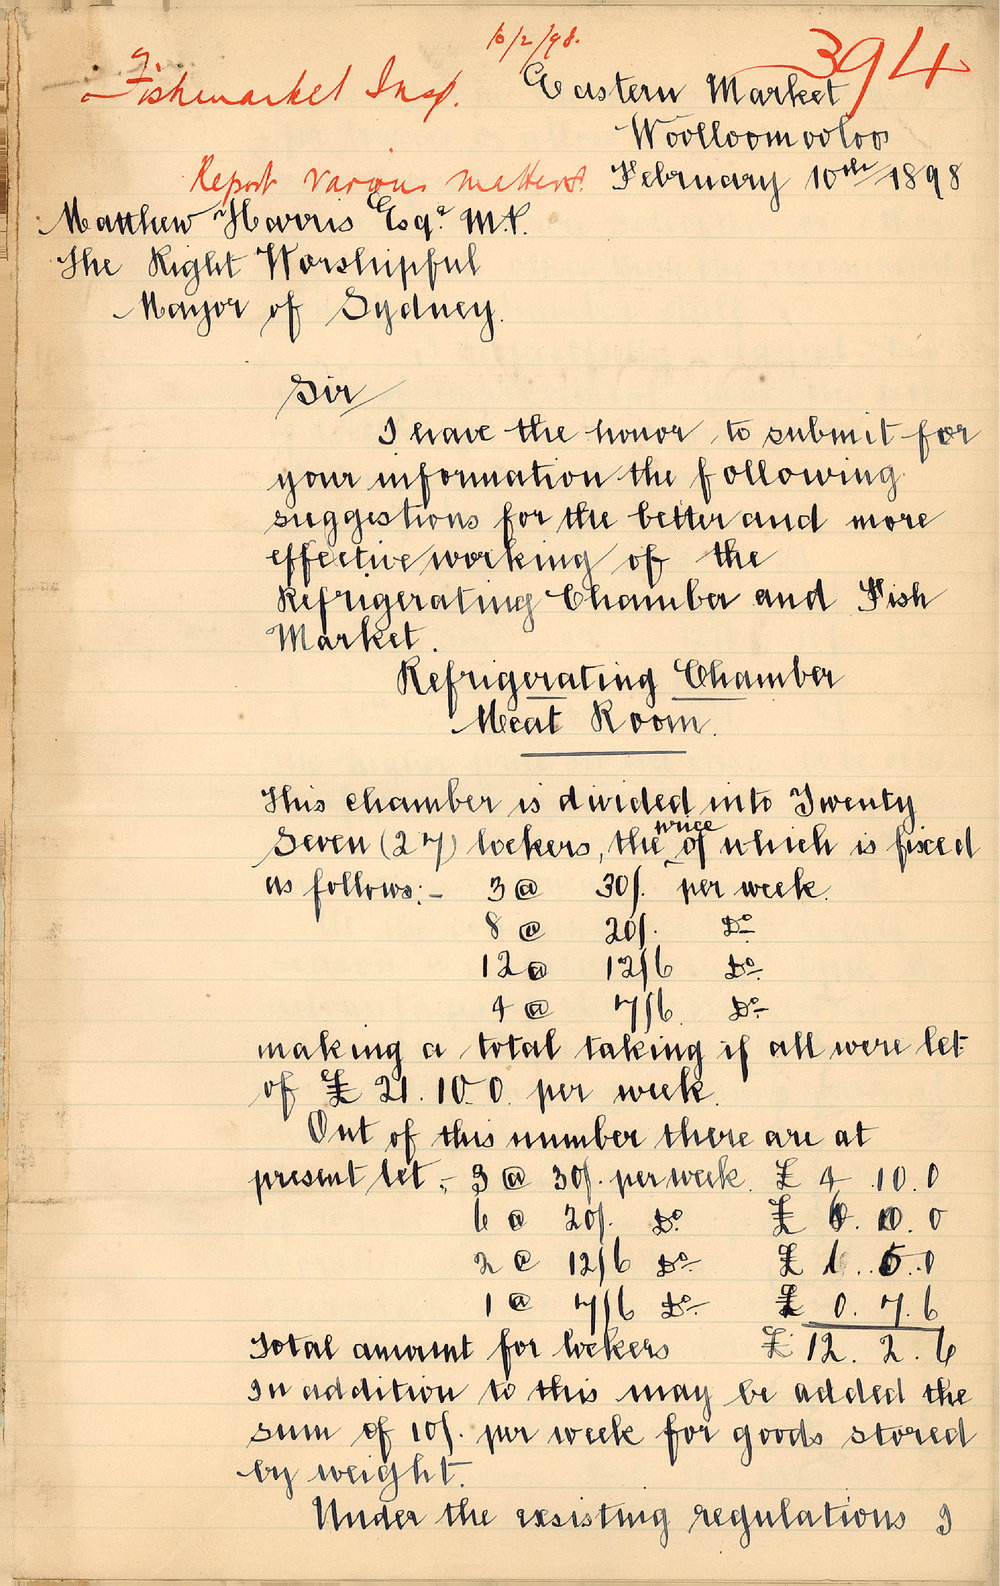 10/2/98.
394
Fishmarket Insp.
Eastern Market
Woolloomooloo
Report various matters
February 10th 1898
Matthew Harris Esqr. M.P.
The Right Worshipful
Mayor of Sydney.
Sir
I have the honor to submit for
your information the following
suggestions for the better and more
effective working of the
Refrigerating Chamber and Fish
Market.
Refrigerating Chamber
Meat Room.
This chamber is divided into Twenty
Seven (27) lockers, the price of which is fixed
as follows:- 3 @ 30/. per week.
8 @ 20/. Do
12 @ 12/6 Do
4 @ 7/6. Do
making a total taking if all were let
of £ 21. 10. 0. per week.
Out of this number there are at
present let:- 3 @ 30/. per week. £ 4. 10. 0
6 @ 20/. Do £ 6. 0. 0
2 @ 12/6 Do £ 1. 5. 0
1 @ 7/6 Do £ 0. 7. 6
Total amount for lockers £ 12. 2. 6
In addition to this may be added the
sum of 10/. per week for goods stored
by weight.
Under the exsisting regulations I